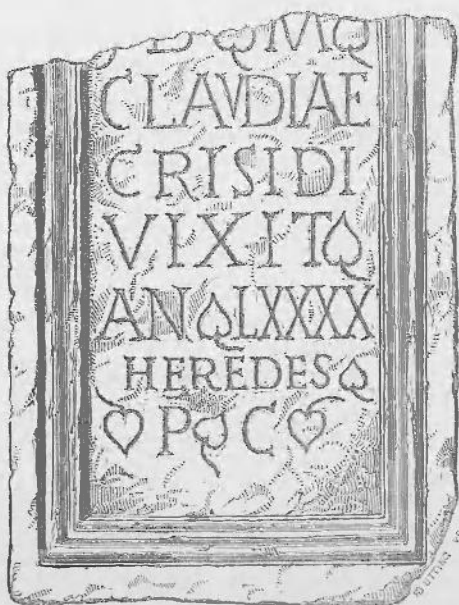 D M
CLAVDIAE
CRISIDI
VIXIT
AN LXXXX
HEREDES
P C